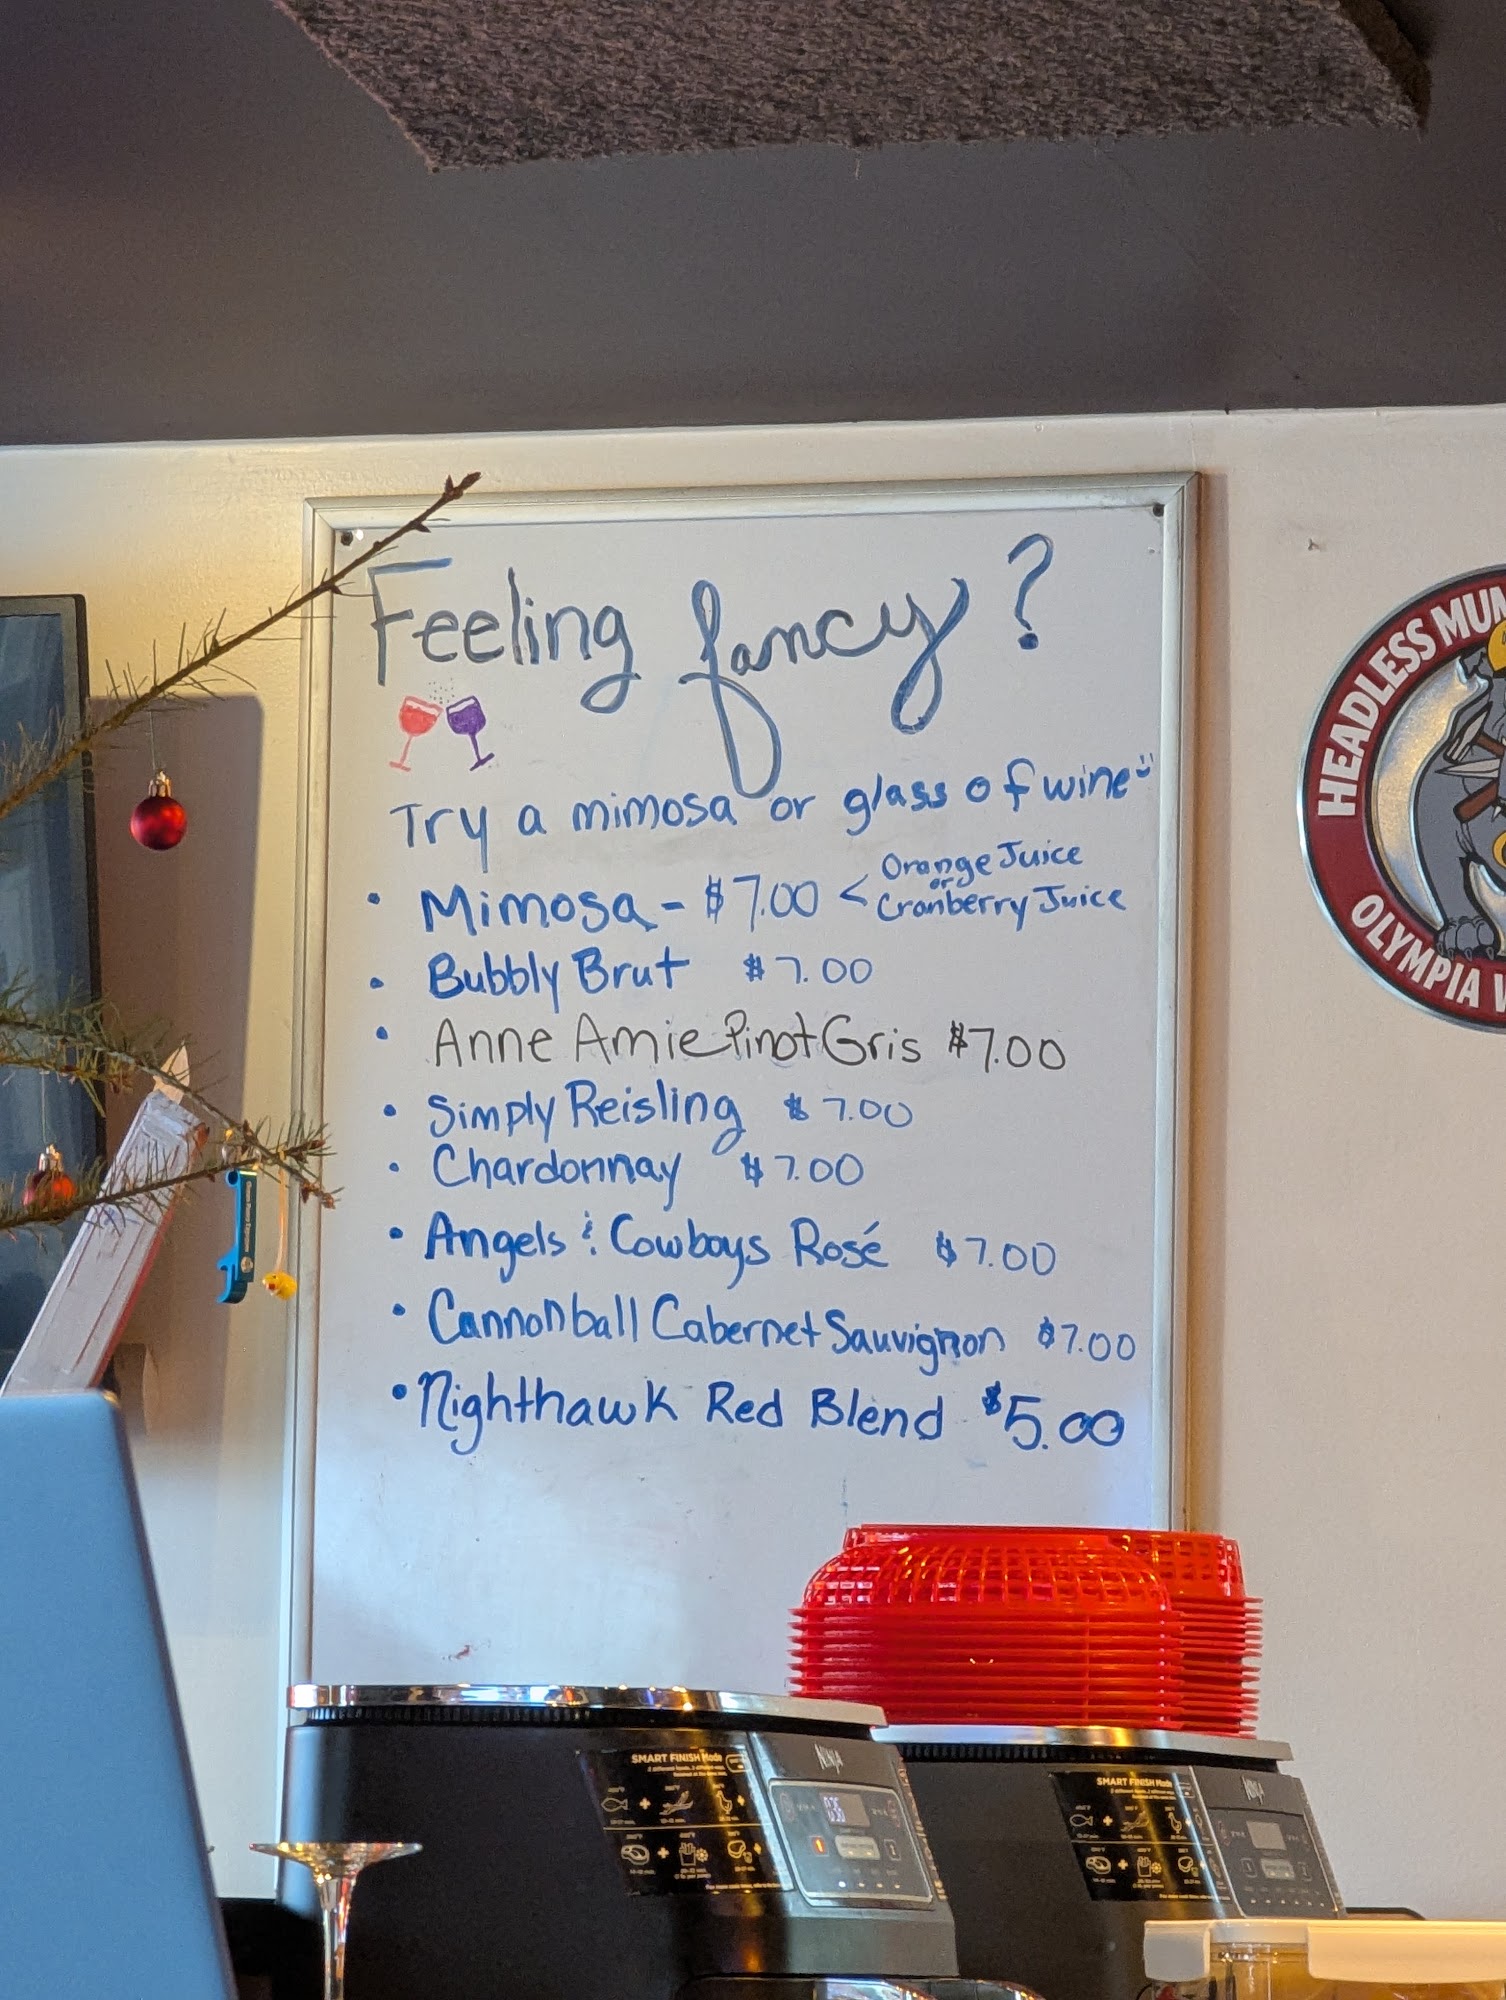 Feeling fancy?
Try a mimosa or glass of wine
Mimosa - $7.00 < Orange Juice
or
Cranberry Juice
Bubbly Brut $7.00
Anne Amie Pinot Gris $7.00
Simply Reisling $7.00
Chardonnay $7.00
Angels & Cowboys Rosé $7.00
Cannonball Cabernet Sauvignon $7.00
Nighthawk Red Blend $5.00
HEADLESS
OLYMPIA
SMART FINISH Mode
NINJA
SMART FINISH Mode
NINJA